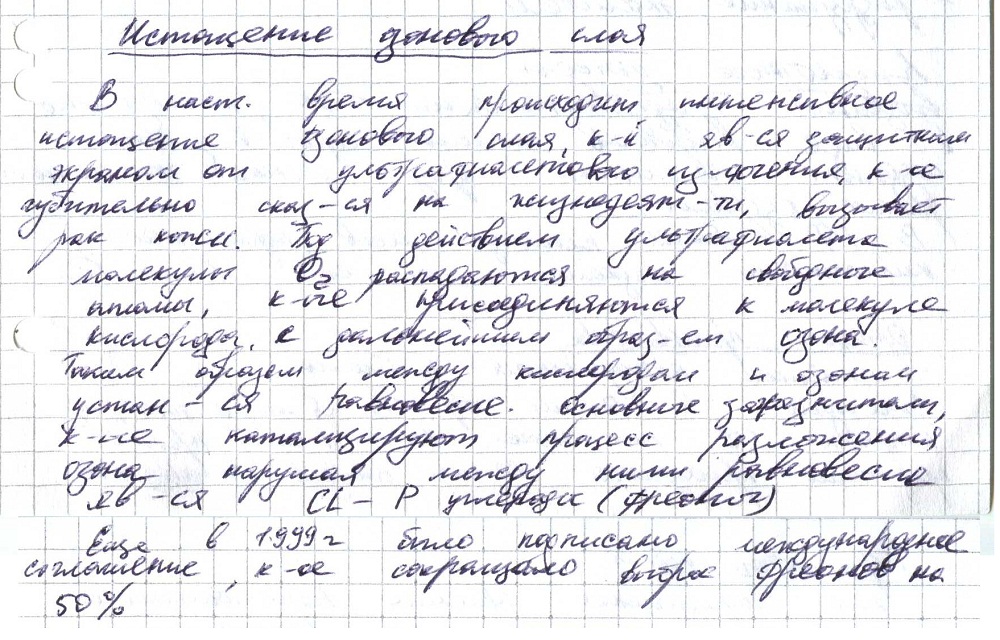 Истощение озонового слоя
В наст. время происходит интенсивное
истощение озонового слоя, к-й яв-ся защитным
экраном от ультрафиолетового излучения, к-ое
губительно сказ-ся на жизнедеят-ти, вызывает
рак кожи. Под действием ультрафиолета
молекулы O2 распадаются на свободные
атомы, к-ые присоединяются к молекуле
кислорода, с дальнейшим образ-ем озона.
Таким образом между кислородом и озоном
устан-ся равновесие. Основные загрязнители,
к-ые катализируют процесс разложения
озона нарушая между ними равновесие
яв-ся CL - P углероды (фреоны)
Еще в 1999 г было подписано международное
соглашение, к-ое сокращало выброс фреонов на
50 %